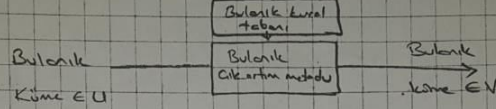 Bulanık kural
tabanı
Bulanık
Küme ∈ U
Bulanık
Çıkartım metodu
Bulanık
küme ∈ V